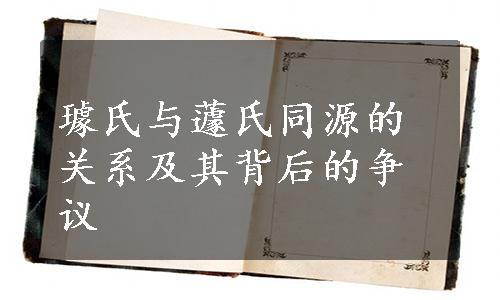 璩氏与蘧氏同源的
关系及其背后的争
议